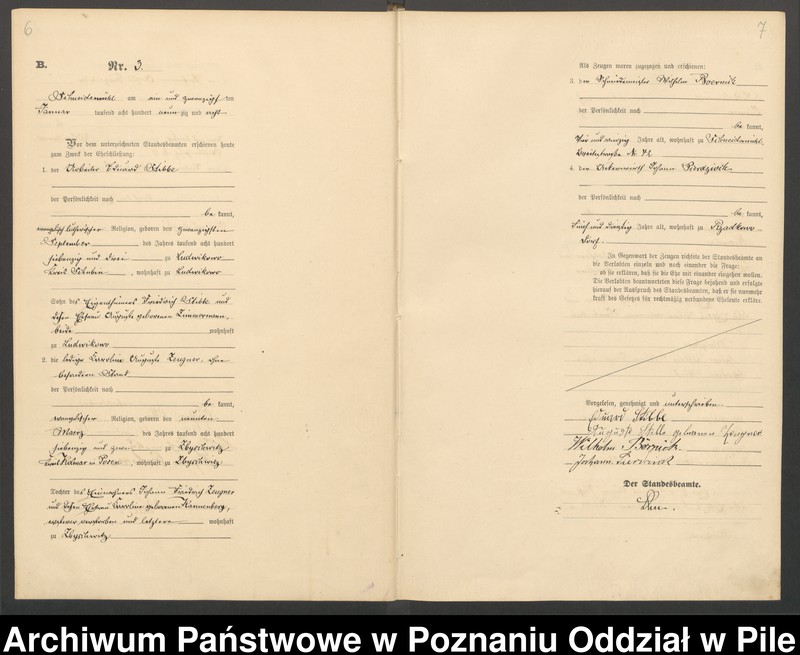 6
B. Nr. 3.
Schneidemühl am ein und zwanzigsten
Januar tausend acht hundert neunzig und acht
Vor dem unterzeichneten Standesbeamten erschienen heute
zum Zweck der Eheschließung:
1. der Arbeiter Eduard Stibbe
der Persönlichkeit nach
be kannt,
evangelisch lutherischer Religion, geboren den zwanzigsten
September des Jahres tausend acht hundert
siebenzig und drei zu Ludwikowo
Kreis Schubin, wohnhaft zu Ludwikowo
Sohn des Eigenthümers Friedrich Stibbe und
dessen Ehefrau Auguste geborenen Zimmermann,
beide wohnhaft
zu Ludwikowo
2. die ledige Karoline Auguste Zeugner, ohne
besonderen Stand
der Persönlichkeit nach
be kannt,
evangelischer Religion, geboren den neunten
Maerz des Jahres tausend acht hundert
siebenzig und zwei zu
Kreis Kolmar in Posen, wohnhaft zu
Tochter des Johann Friedrich Zeugner
und dessen Ehefrau Karoline geborenen Kannenberg,
ersterer verstorben und letztere wohnhaft
zu
7
Als Zeugen waren zugezogen und erschienen:
3. der Schneidemeister Wilhelm Boernick
der Persönlichkeit nach
be kannt,
Jahre alt, wohnhaft zu Schneidemühl
Nr. 42
4. der Ackerwirth Johann
der Persönlichkeit nach
be kannt,
fünf und dreißig Jahre alt, wohnhaft zu Rzadkowo
Dorf.
In Gegenwart der Zeugen richtete der Standesbeamte an
die Verlobten einzeln und nach einander die Frage:
ob sie erklären, daß sie die Ehe mit einander eingehen wollen.
Die Verlobten beantworteten diese Frage bejahend und erfolgte
hierauf der Ausspruch des Standesbeamten, daß er sie nunmehr
kraft des Gesetzes für rechtmäßig verbundene Eheleute erkläre.
Vorgelesen, genehmigt und unterschrieben
Eduard Stibbe
Auguste Stibbe geborenen Zeugner
Wilhelm Börnick
Johann
Der Standesbeamte.
Archiwum Państwowe w Poznaniu Oddział w Pile